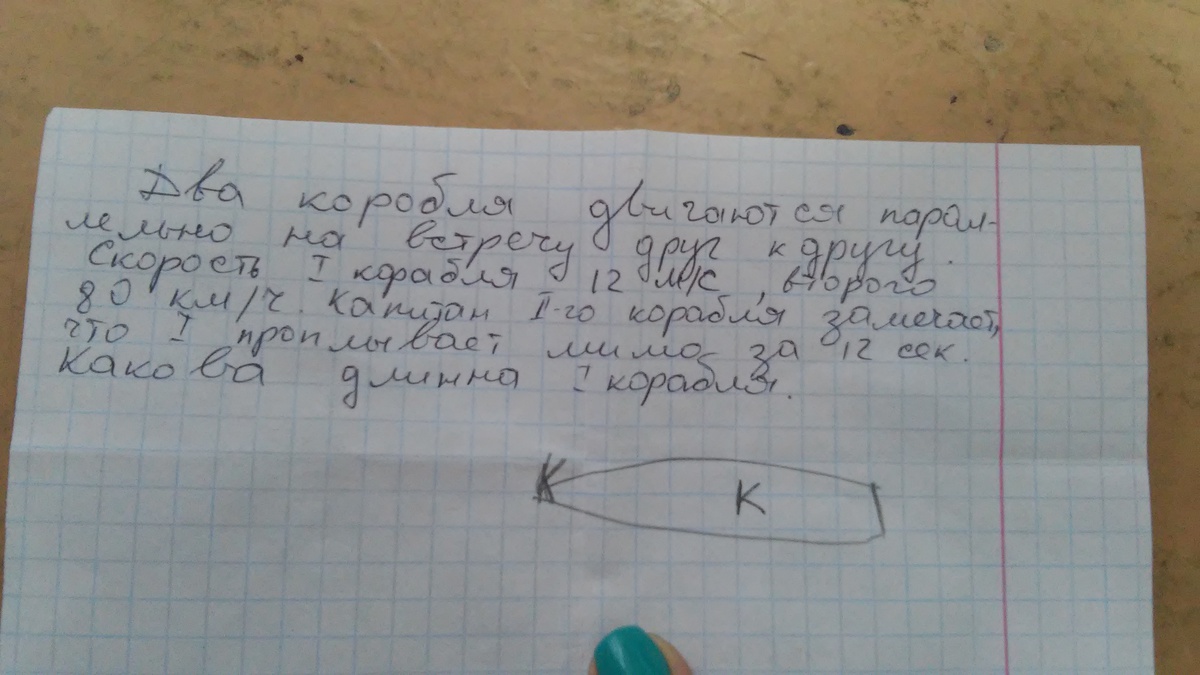 Два коробля двигаются парал-
лельно на встречу друг к другу.
Скорость I корабля 12 м/с, второго
80 км/ч. Капитан II-го корабля замечает,
что I проплывает мимо за 12 сек.
Какова длинна I корабля.
К К